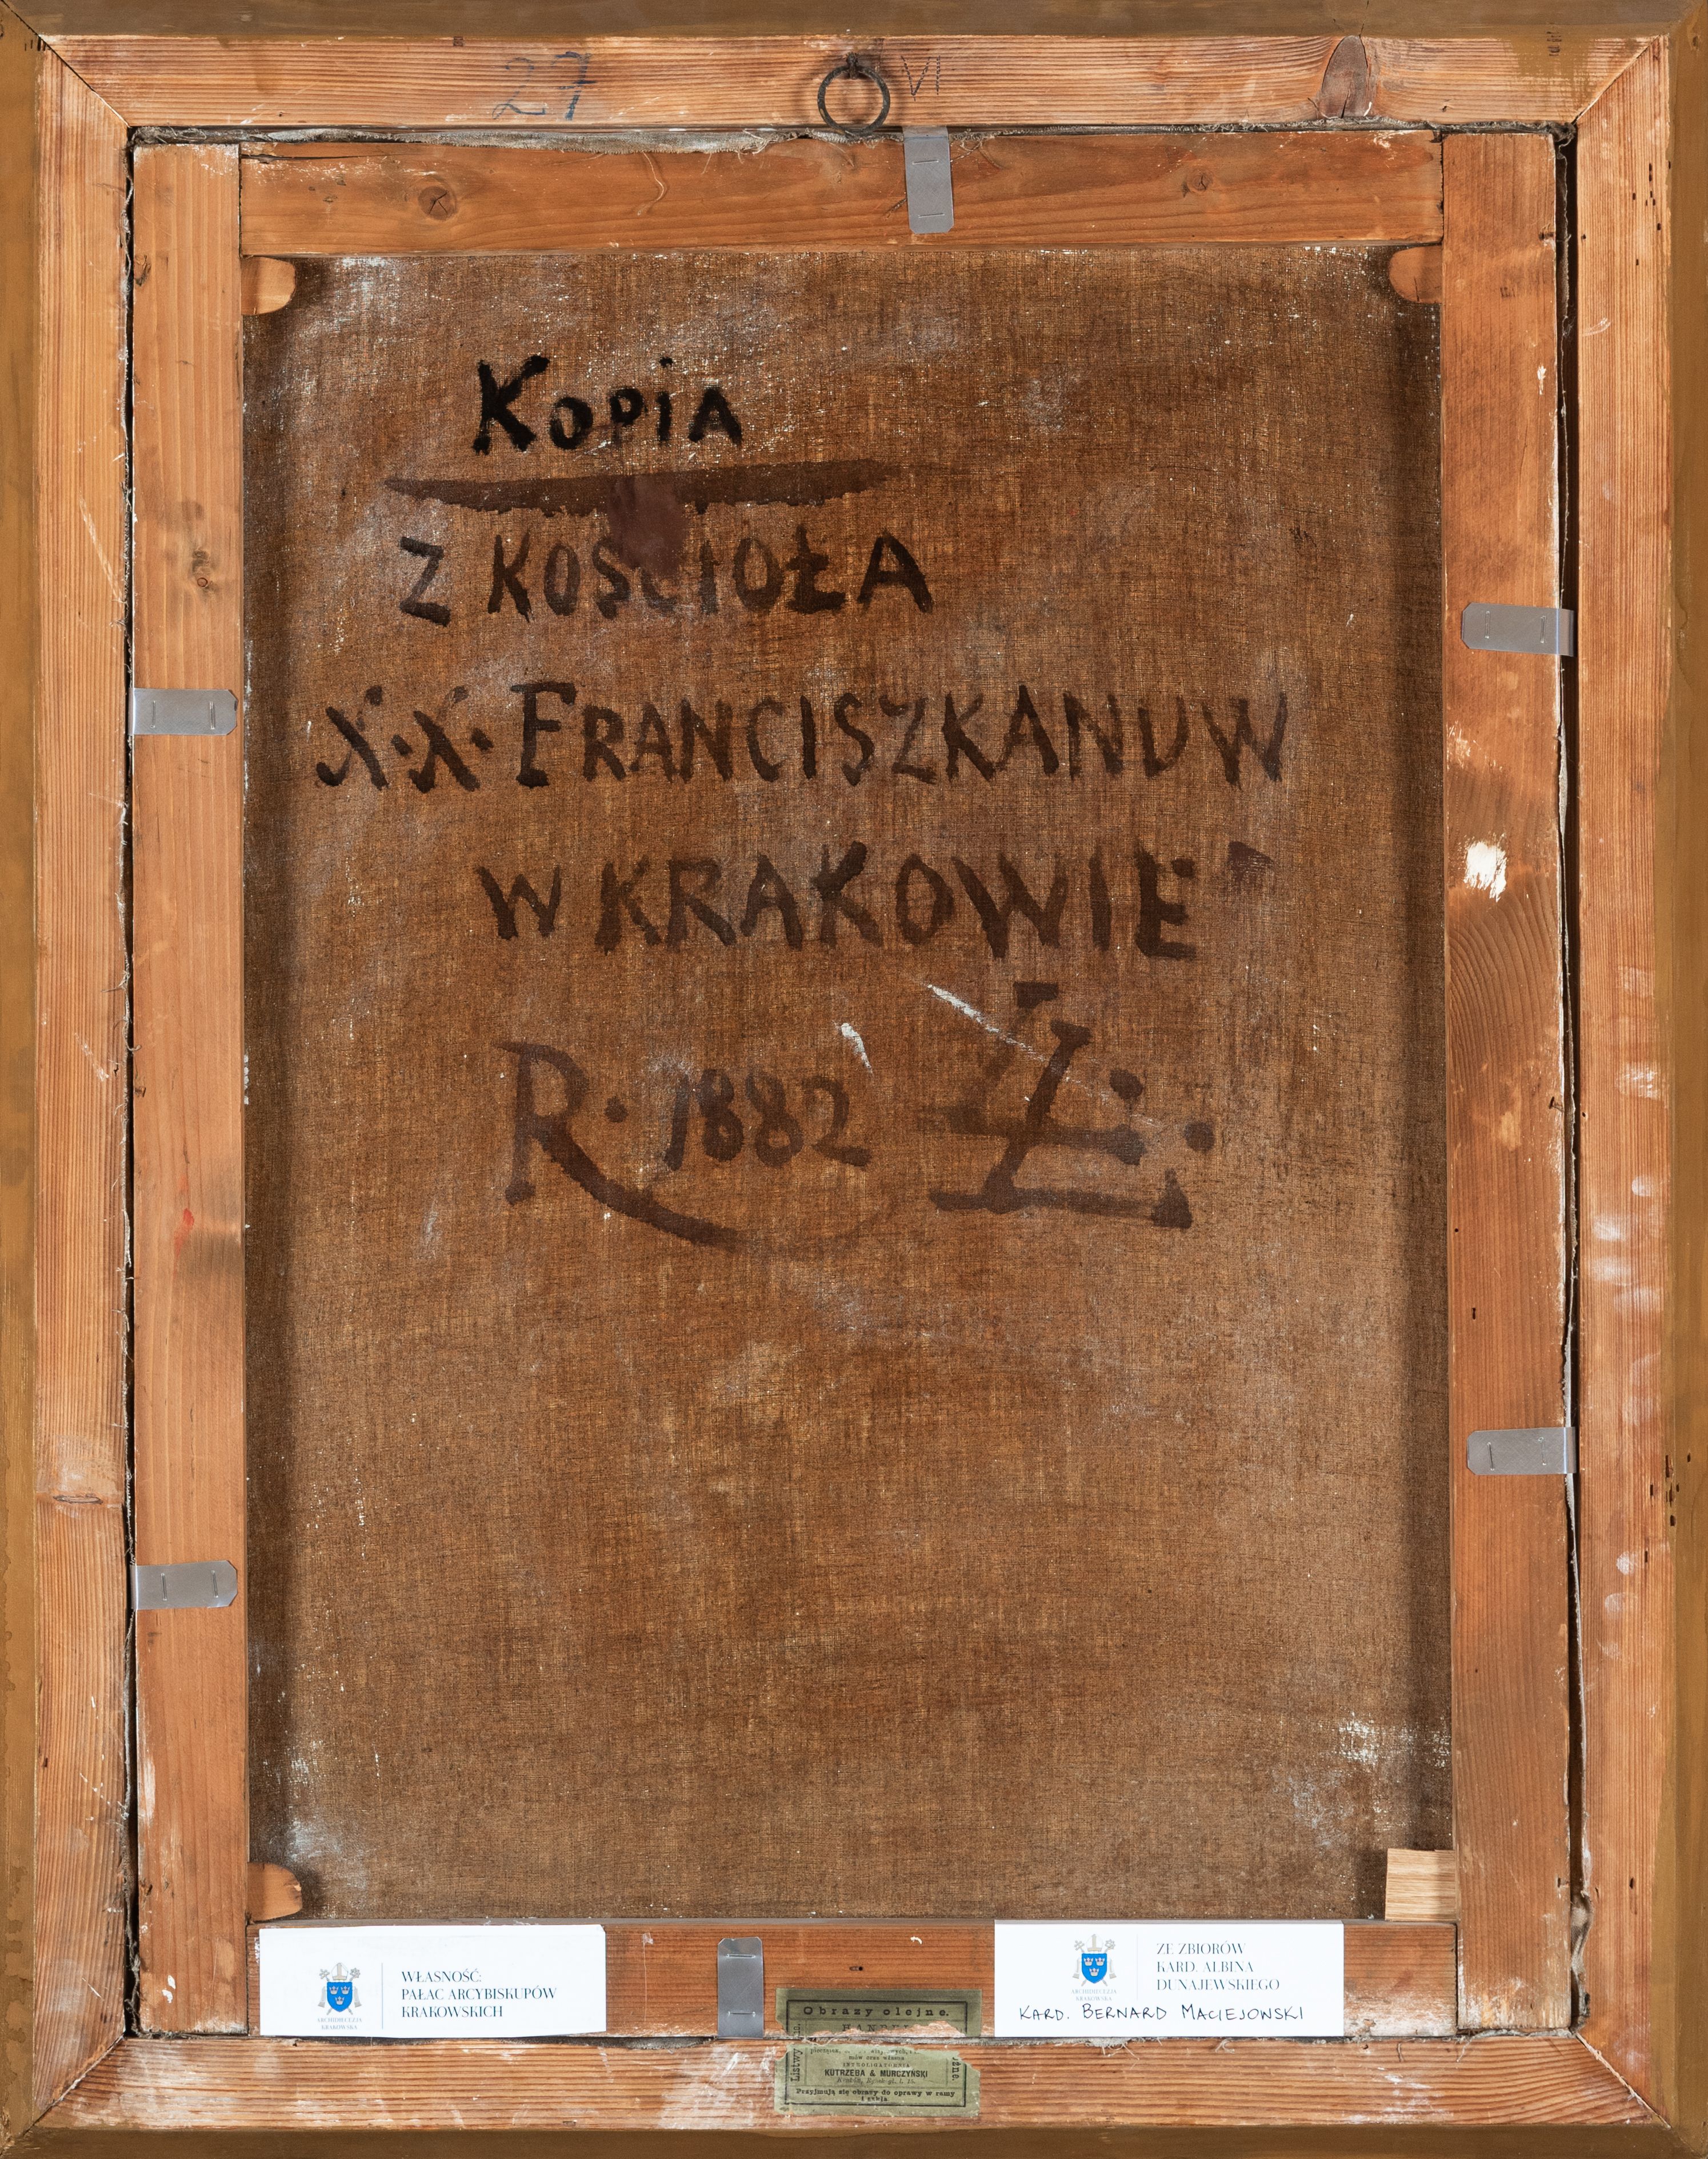 27
VI
Kopia
Z KOŚCIOŁA
X·X· FRANCISZKANUW
W KRAKOWIE
R· 1882 Ł.
WŁASNOŚĆ:
PAŁAC ARCYBISKUPÓW
KRAKOWSKICH
ARCHIDIECEZJA
KRAKOWSKA
ZE ZBIORÓW
KARD. ALBINA
DUNAJEWSKIEGO
ARCHIDIECEZJA
KRAKOWSKA
KARD. BERNARD MACIEJOWSKI
Obrazy olejne.
INTROLIGATORNIA
KUTRZEBA & MURCZYŃSKI
Przyjmują się obrazy do oprawy w ramy
i szkła